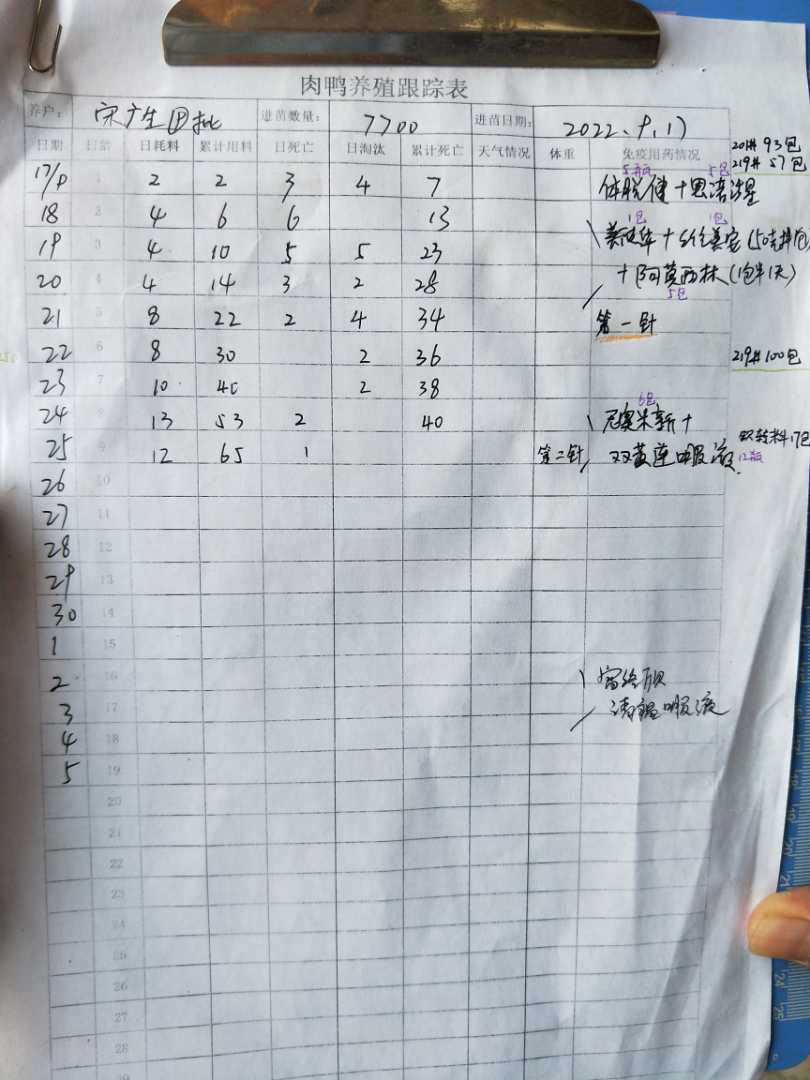 肉鸭养殖跟踪表
养户: 宋广生 进苗数量: 7700 进苗日期: 2022.9.17
日期 日龄 日耗料 累计用料 日死亡 日淘汰 累计死亡 天气情况 体重 免疫用药情况
201# 93包
219# 57包
5包
17/9 2 2 3 4 7
18 2 4 6 6 13
1包 1包
19 3 4 10 5 5 23
20 4 4 14 3 2 28 +阿莫西林
5包
21 5 8 22 2 4 34 第一针
22 6 8 30 2 36 219# 100包
23 7 10 40 2 38
6包
24 8 13 53 2 40
17包
25 9 12 65 1 第二针 双黄连口服液 12瓶
26 10
27 11
28 12
29 13
30 14
1 15
2 16
3 17 口服液
4 18
5 19
20
21
22
23
24
25
26
27
28
29